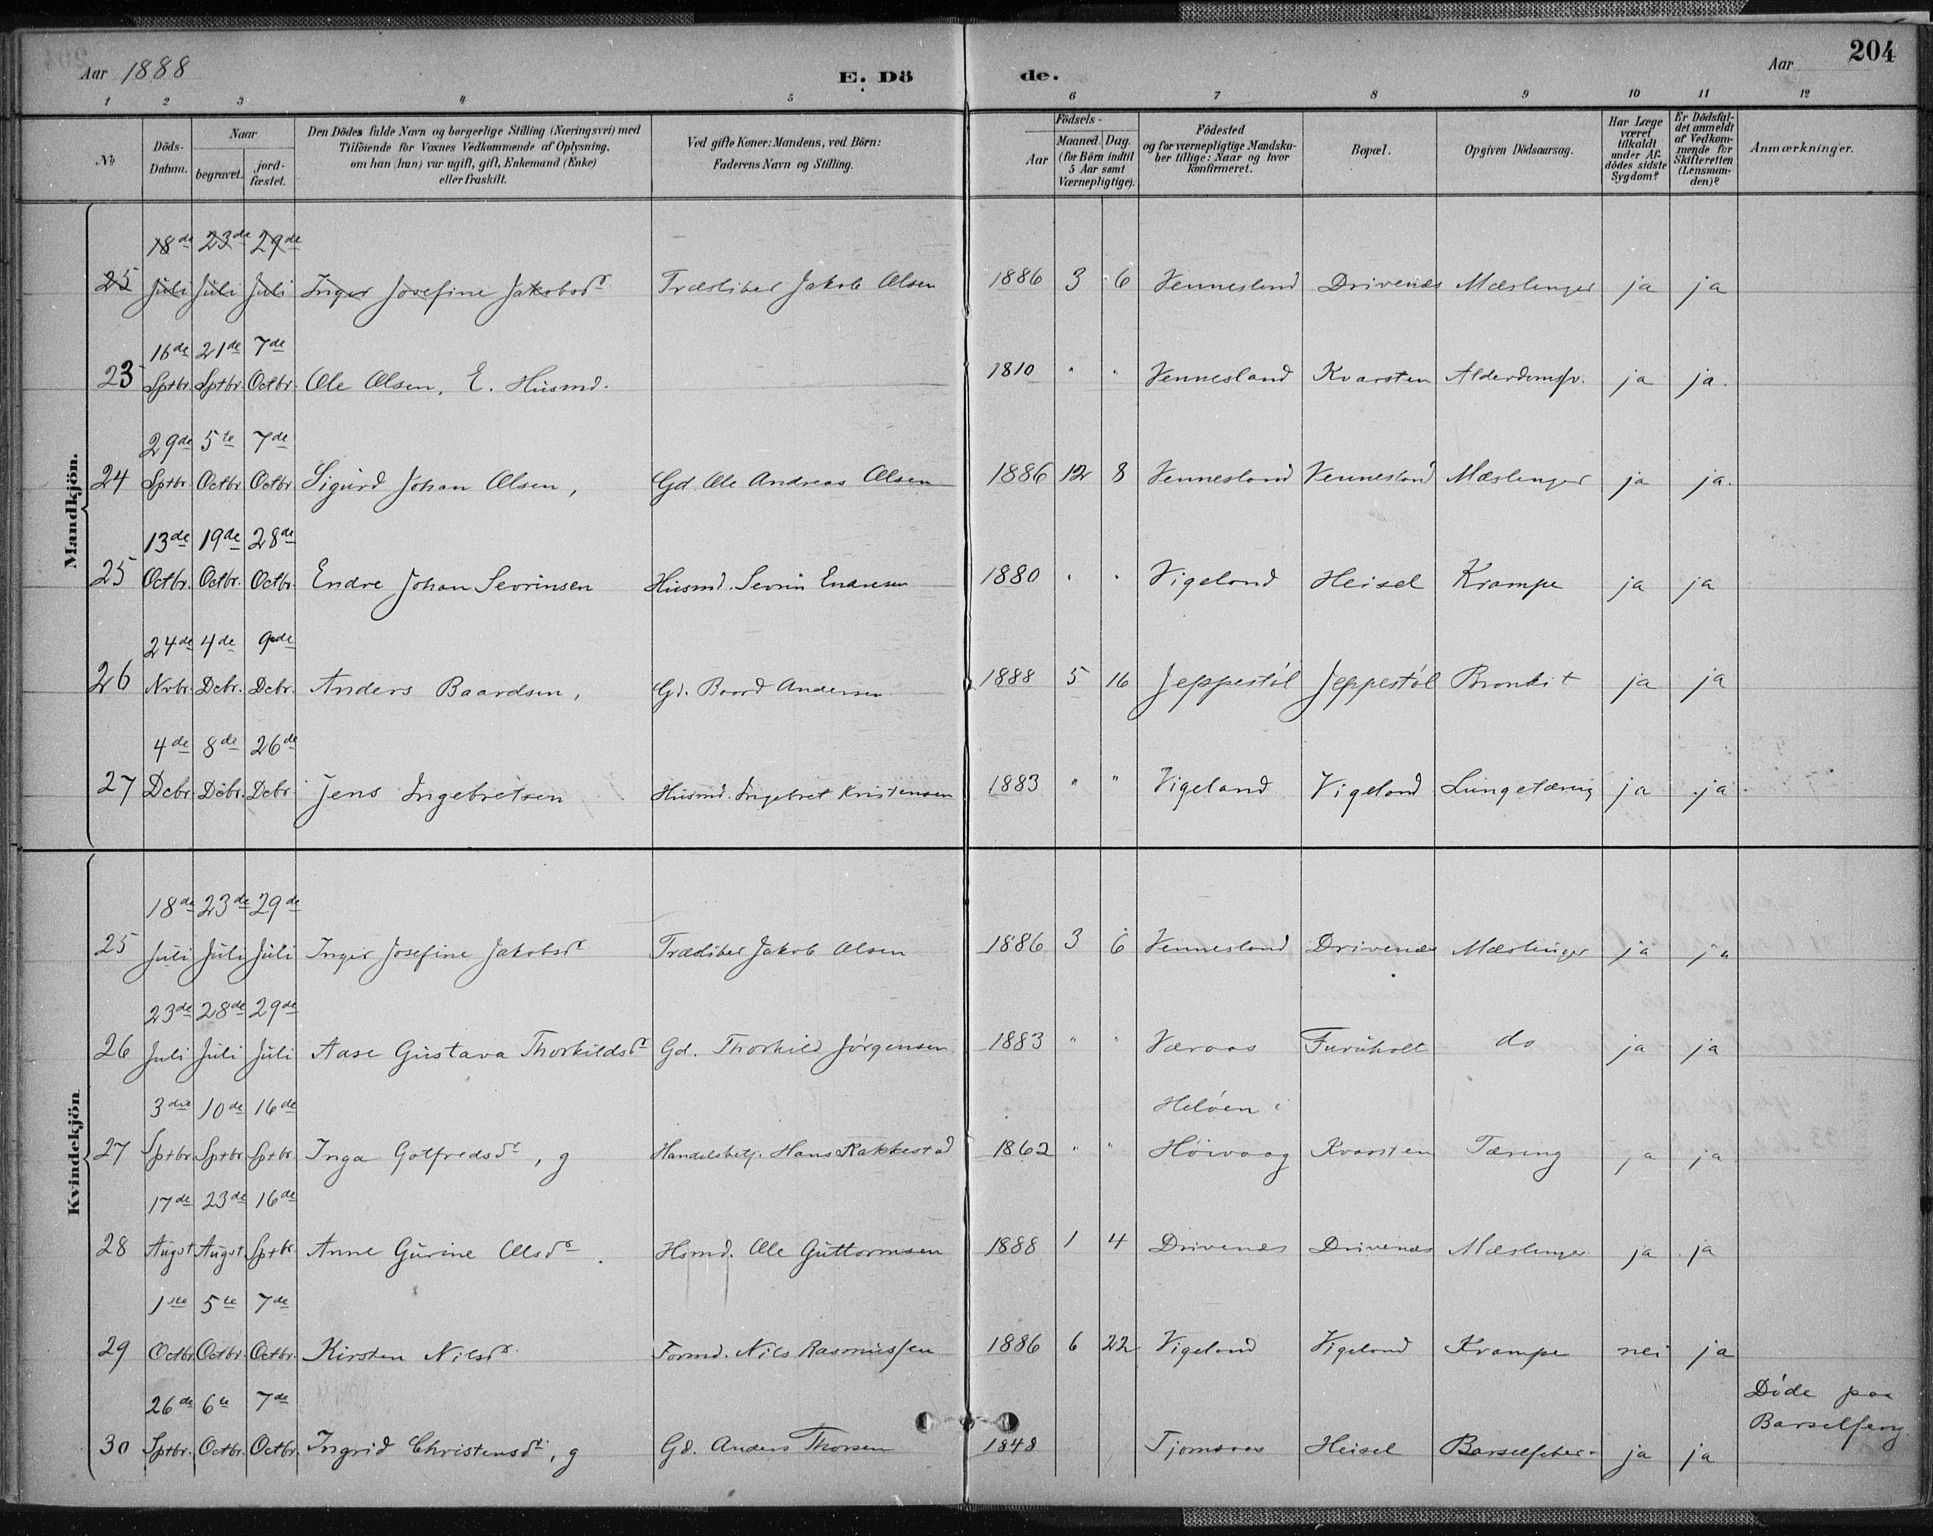 204
Aar 1888 E. Dö de. Aar
1 2 3 4 5 6 7 8 9 10 11 12
No
Döds-Datum.
Naar
begravet.
jord-fæstet.
Den Dödes fulde Navn og borgerlige Stilling (Næringsvei) med
Tilföiende for Voxnes Vedkommende af Oplysning,
om han (hun) var ugift, gift, Enkemand (Enke)
eller fraskilt.
Ved gifte Koner: Mandens, ved Börn:
Faderens Navn og Stilling.
Födsels-
Aar
Maaned. Dag.
(for Börn indtil
5 Aar samt
Værnepligtige).
Födested
og for værnepligtige Mandska-
ber tillige: Naar og hvor
konfirmeret.
Bopæl.
Opgiven Dödsaarsag.
Har Læge
været
tilkaldt
under Af-
dödes sidste
Sygdom?
Er Dödsfal-
det anmeldt
af Vedkom-
mende for
Skifteretten
(Lensman-
den)?
Anmærkninger.
Mandkjön.
18de 23de 29de
25 Juli Juli Juli Inger Josefine Jakobsdr Træsliber Jakob Olsen 1886 3 6 Vennesland Drivenæs Mæslinger ja ja
16de 21de 7de
23 Sptbr. Sptbr. Octbr. Ole Olsen, E. Husmd. 1810 " " Vennesland Kvarsten Alderdomssv. ja ja.
29de 5te 7de
24 Sptbr Octbr Octbr Sigurd Johan Olsen, Gd. Ole Andreas Olsen 1886 12 8 Vennesland Vennesland Mæslinger ja ja.
13de 19de 28de
25 Octbr. Octbr. Octbr. Endre Johan Sevrinsen Husmd. Sevrin Endresen 1880 " " Vigeland Heisel Krampe ja ja
24de 4de 9de
26 Nvbr. Dcbr. Dcbr. Anders Baardsen, Gd. Baard Andersen 1888 5 16 Jeppestøl Jeppestøl Bronkit ja ja
4de 8de 26de
27 Dcbr. Dcbr. Dcbr. Jens Ingebretsen Husmd. Ingebret Kristensen 1883 " " Vigeland Vigeland Lungetæring ja ja.
Kvindekjön
18de 23de 29de
25 Juli Juli Juli Inger Josefine Jakobsdr Træsliber Jakob Olsen 1886 3 6 Vennesland Drivenæs Mæslinger ja ja
23de 28de 29de
26 Juli Juli Juli Aase Gustava Thorkildsdr Gd. Thorkild Jørgensen 1883 " " Væraas Furuholt do ja ja
3die 10de 16de Heløen i
27 Sptbr. Sptbr. Sptbr. Inga Gotfredsdr, g Handelsbetj. Hans Rakkestad 1862 " " Høivaag Kvarsten Tæring ja ja
17de 23de 16de
28 Augst Augst Sptbr. Anne Gurine Olsdr. Hsmd. Ole Guttormsen 1888 1 4 Drivenæs Drivenæs Mæslinger ja ja
1ste 5te 7de
29 Octbr. Octbr. Octbr. Kirsten Nilsdr Formd. Nils Rasmussen 1886 6 22 Vigeland Vigeland Krampe nei ja
26de 6te 7de Døde paa
Barselseng.
30 Sptbr. Octbr. Octbr. Ingrid Christensdr, g Gd. Anders Thorsen 1848 Tjomsaas Heisel Barselfeber. ja ja